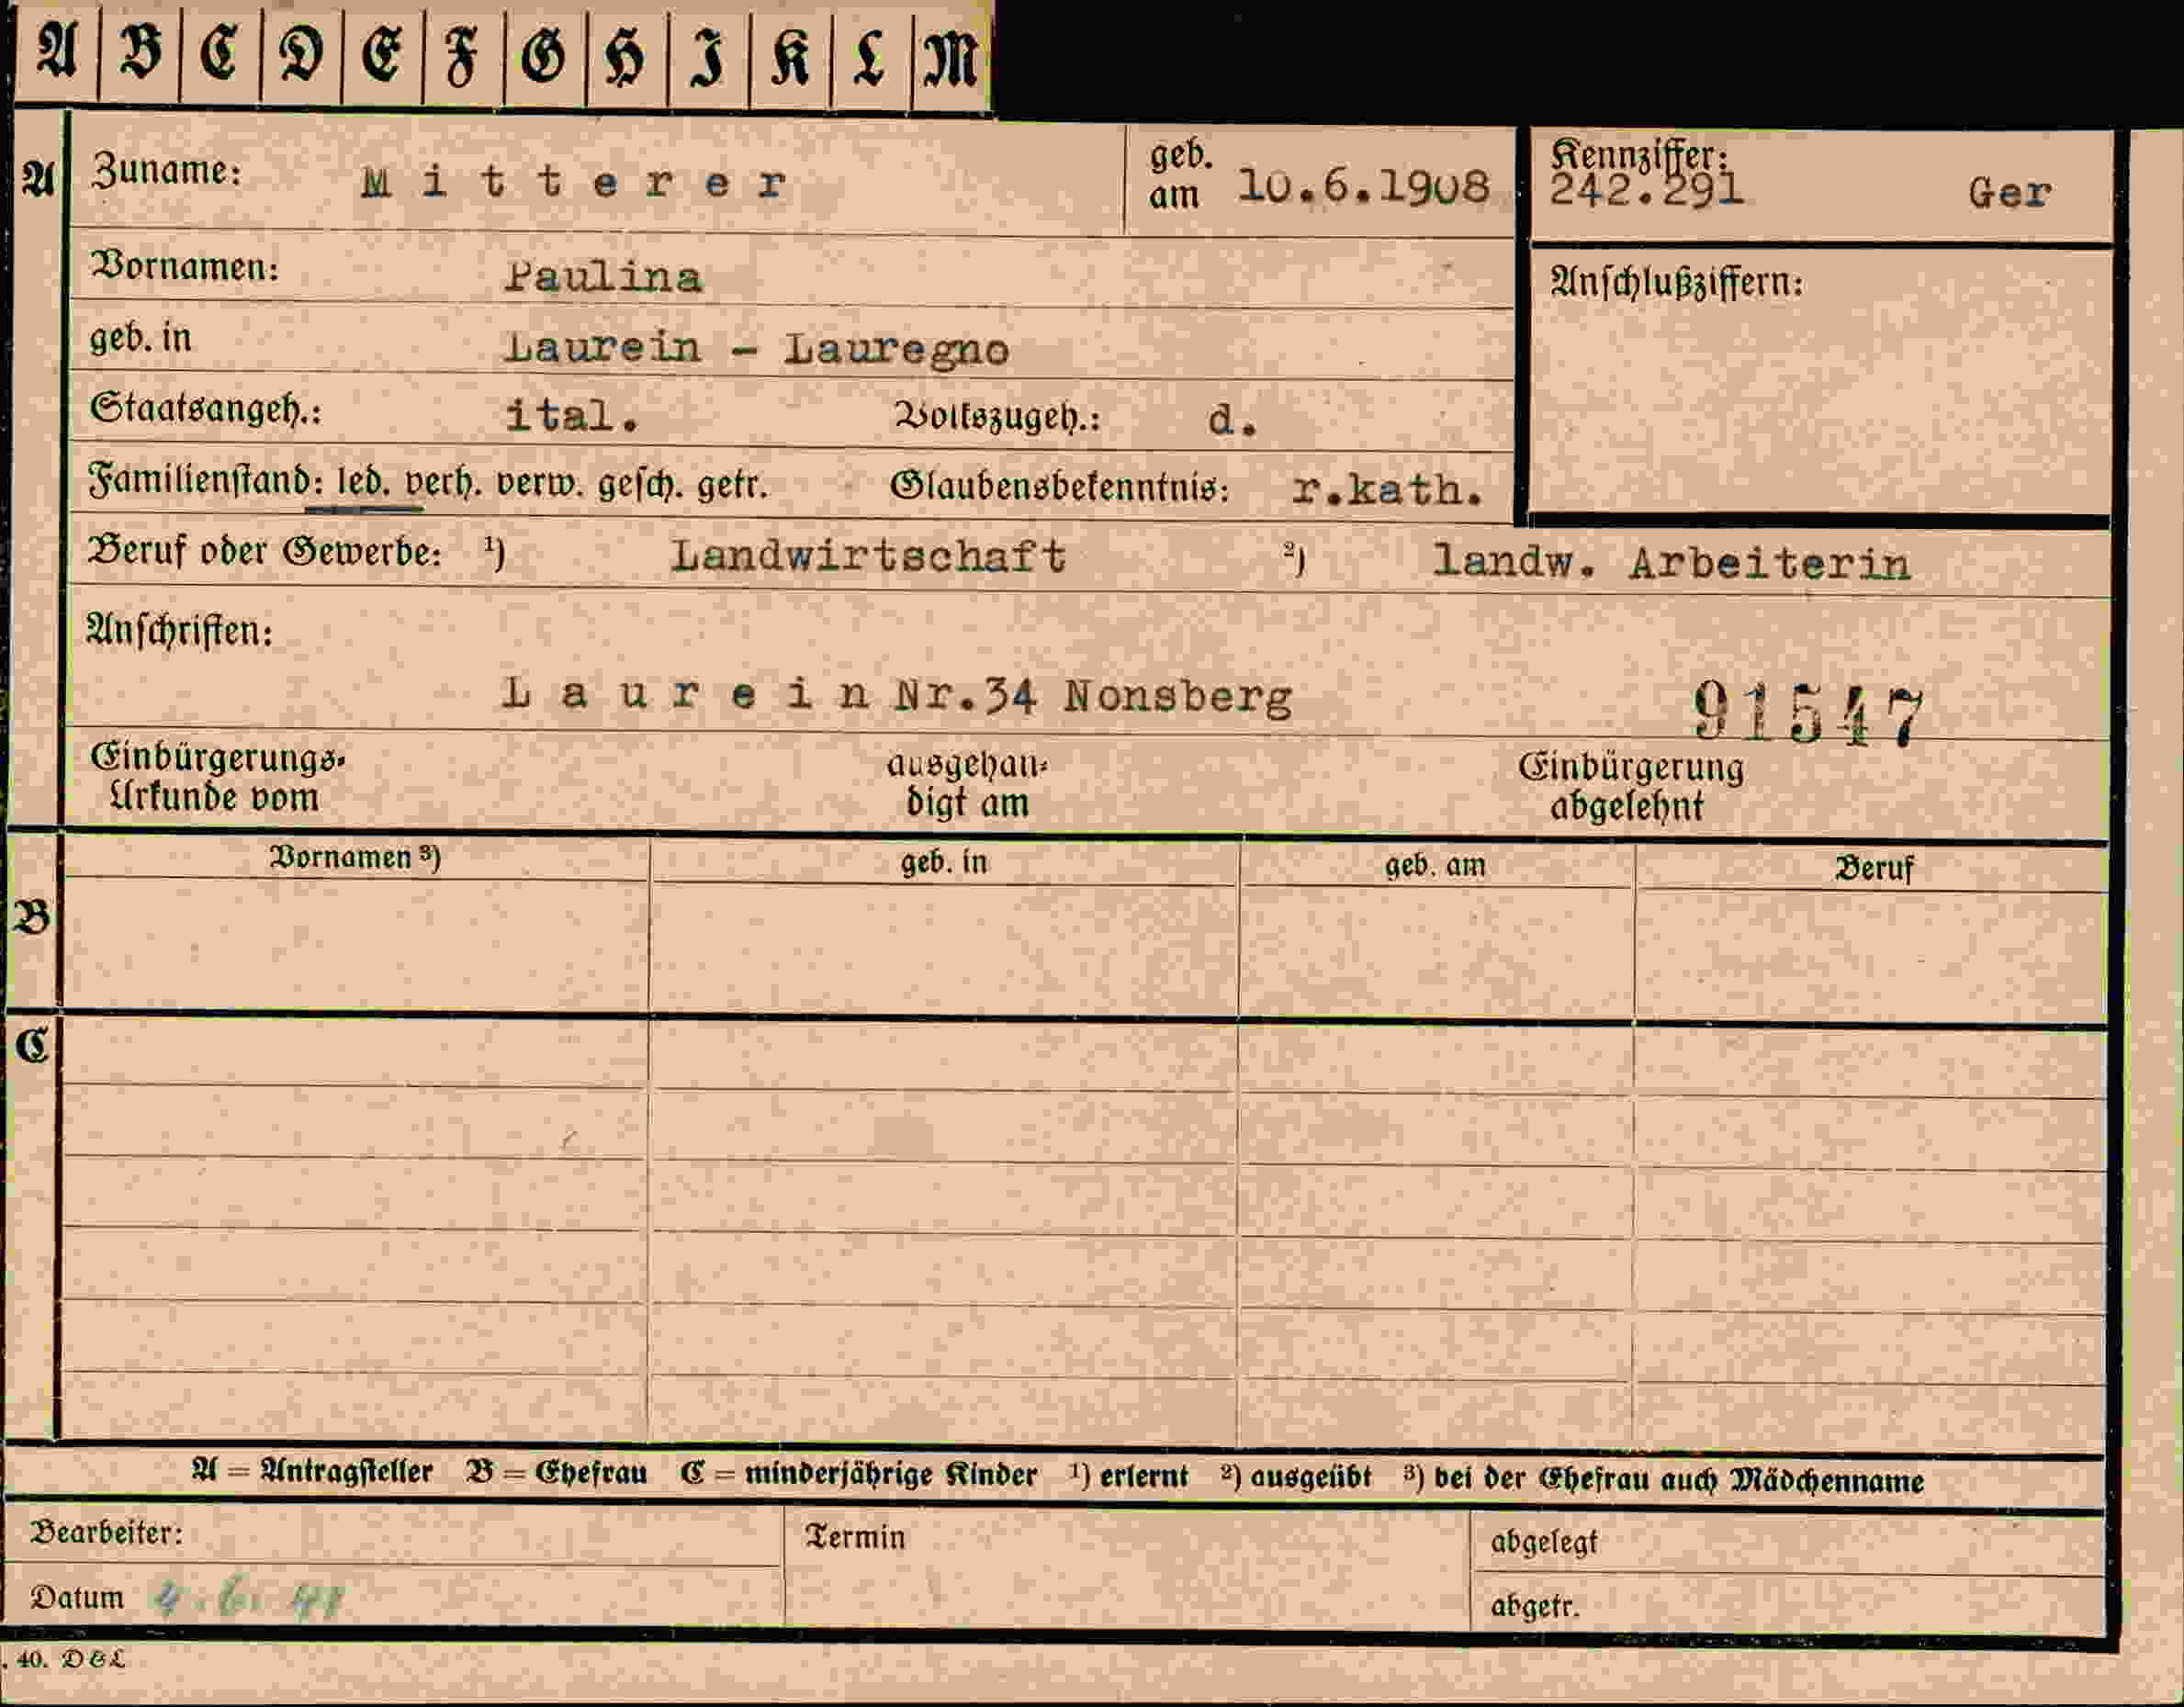 A B C D E F G H I K L M
A Zuname: Mitterer geb. am 10.6.1908 Kennziffer: 242.291 Ger
Vornamen: Paulina Anschlußziffern:
geb. in Laurein - Lauregno
Staatsangeh.: ital. Volkszugeh.: d.
Familienstand: led. verh. verw. gesch. getr. Glaubensbekenntnis: r.kath.
Beruf oder Gewerbe: ¹) Landwirtschaft ²) landw. Arbeiterin
Anschriften:
Laurein Nr.34 Nonsberg 91547
Einbürgerungs- ausgehän- Einbürgerung
Urkunde vom digt am abgelehnt
Vornamen ³) geb. in geb. am Beruf
B
C
A = Antragsteller B = Ehefrau C = minderjährige Kinder ¹) erlernt ²) ausgeübt ³) bei der Ehefrau auch Mädchenname
Bearbeiter: Termin abgelegt
Datum 4.6.41 abgetr.
. 40. D & L